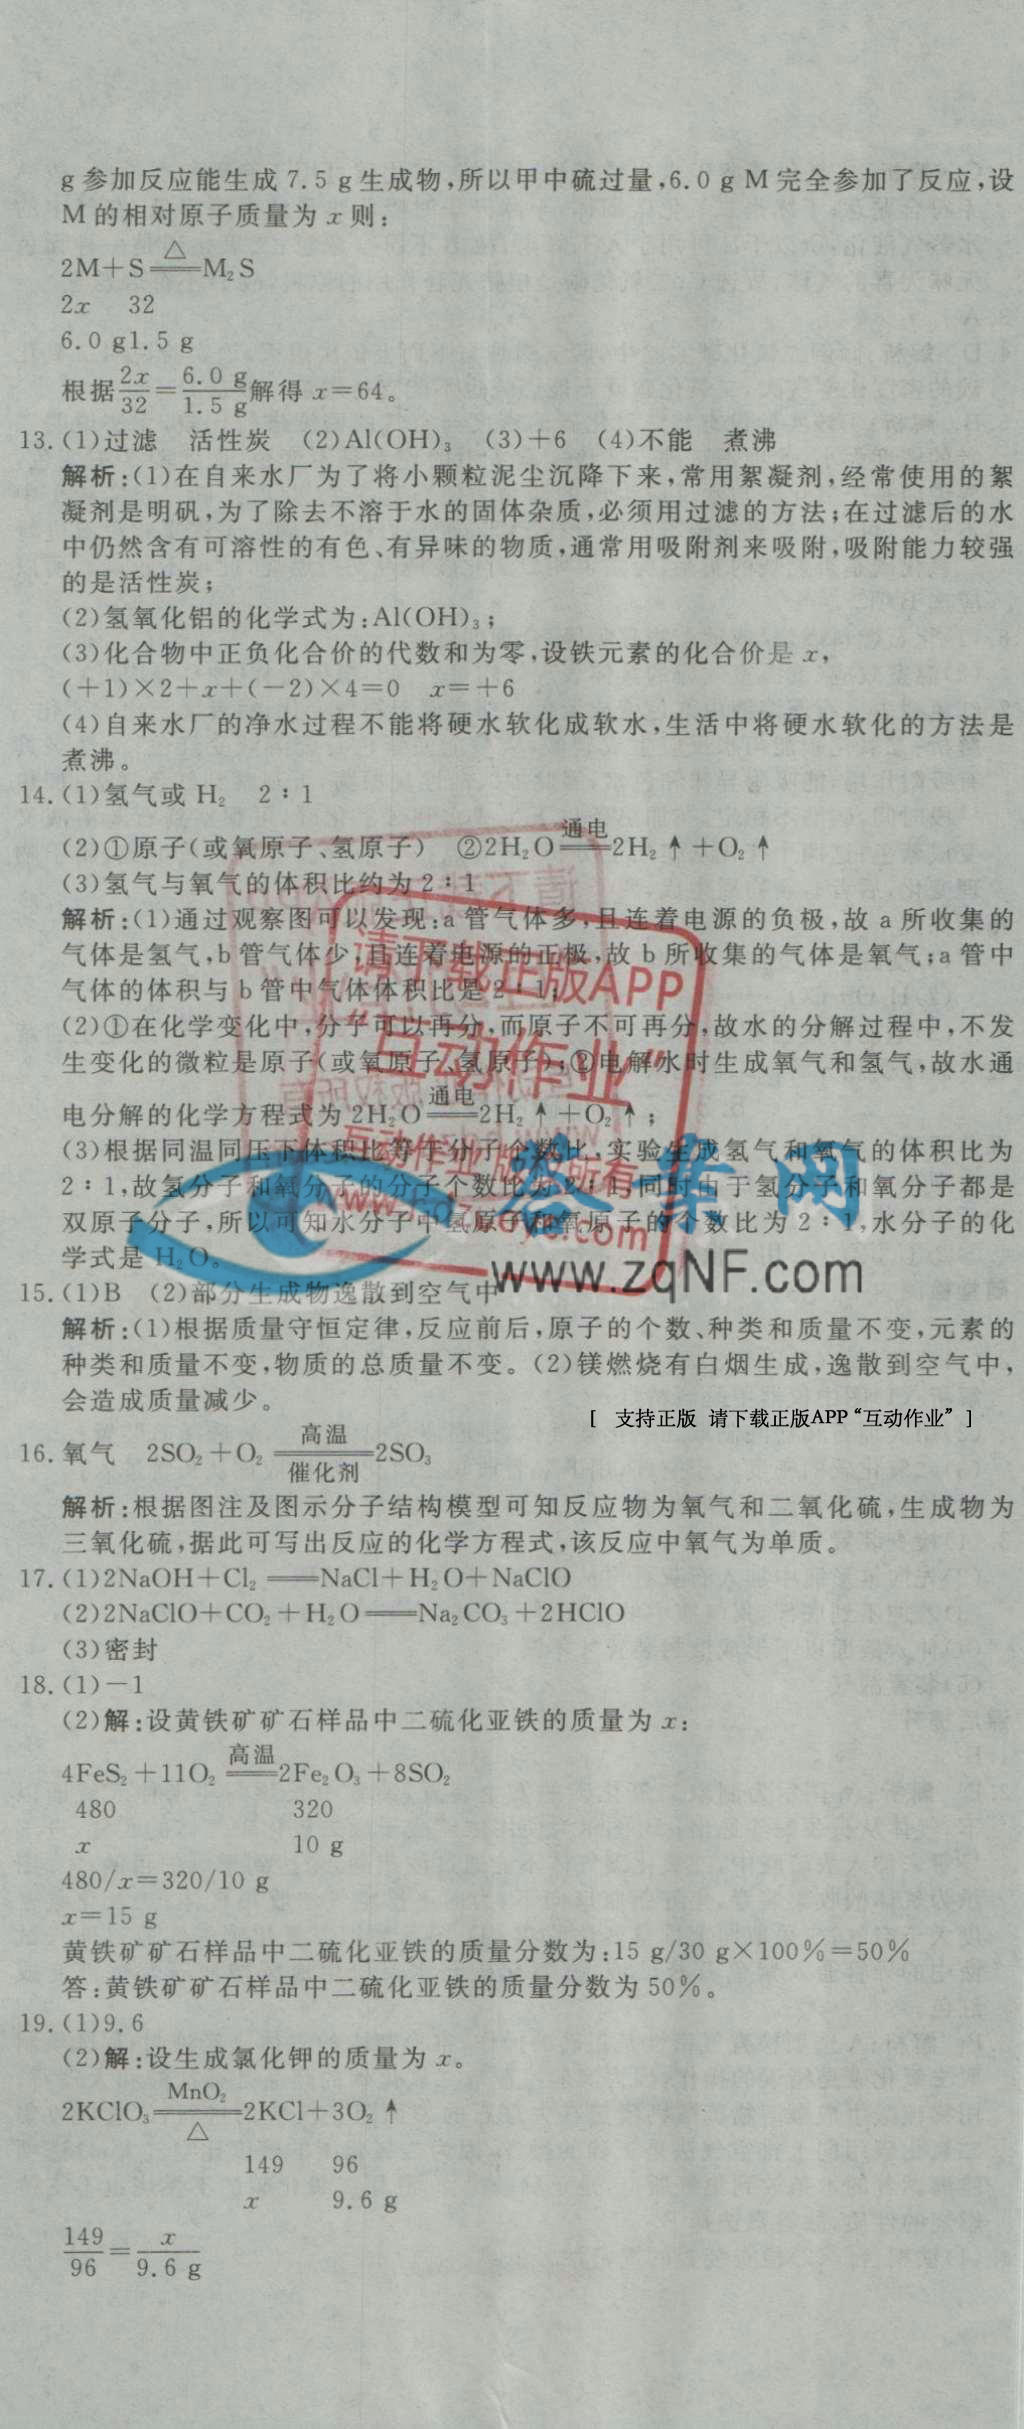 g 参加反应能生成 7.5 g 生成物,所以甲中硫过量,6.0 g M 完全参加了反应,设
M 的相对原子质量为 x 则:
2M+S△══M₂S
2x 32
6.0 g1.5 g
根据2x/32=6.0 g/1.5 g解得 x=64。
13.(1)过滤 活性炭 (2)Al(OH)₃ (3)+6 (4)不能 煮沸
解析:(1)在自来水厂为了将小颗粒泥尘沉降下来,常用絮凝剂,经常使用的絮
凝剂是明矾,为了除去不溶于水的固体杂质,必须用过滤的方法;在过滤后的水
中仍然含有可溶性的有色、有异味的物质,通常用吸附剂来吸附,吸附能力较强
的是活性炭;
(2)氢氧化铝的化学式为:Al(OH)₃;
(3)化合物中正负化合价的代数和为零,设铁元素的化合价是 x,
(+1)×2+x+(-2)×4=0 x=+6
(4)自来水厂的净水过程不能将硬水软化成软水,生活中将硬水软化的方法是
煮沸。
14.(1)氢气或 H₂ 2∶1
(2)①原子(或氧原子、氢原子) ②2H₂O通电══2H₂↑+O₂↑
(3)氢气与氧气的体积比约为 2∶1
解析:(1)通过观察图可以发现:a 管气体多,且连着电源的负极,故 a 所收集的
气体是氢气,b 管气体少,且连着电源的正极,故 b 所收集的气体是氧气;a 管中
气体的体积与 b 管中气体体积比是 2∶1;
(2)①在化学变化中,分子可以再分,而原子不可再分,故水的分解过程中,不发
生变化的微粒是原子(或氧原子、氢原子);②电解水时生成氧气和氢气,故水通
电分解的化学方程式为 2H₂O通电══2H₂↑+O₂↑;
(3)根据同温同压下体积比等于分子个数比,实验生成氢气和氧气的体积比为
2∶1,故氢分子和氧分子的分子个数比为 2∶1,同时由于氢分子和氧分子都是
双原子分子,所以可知水分子中氢原子和氧原子的个数比为 2∶1,水分子的化
学式是 H₂O。
15.(1)B (2)部分生成物逸散到空气中
解析:(1)根据质量守恒定律,反应前后,原子的个数、种类和质量不变,元素的
种类和质量不变,物质的总质量不变。(2)镁燃烧有白烟生成,逸散到空气中,
会造成质量减少。
请下载正版APP
“互动作业”
互动作业 版权所有
答案网
www.zqNF.com
[ 支持正版 请下载正版APP“互动作业” ]
16.氧气 2SO₂+O₂高温══催化剂2SO₃
解析:根据图注及图示分子结构模型可知反应物为氧气和二氧化硫,生成物为
三氧化硫,据此可写出反应的化学方程式,该反应中氧气为单质。
17.(1)2NaOH+Cl₂══NaCl+H₂O+NaClO
(2)2NaClO+CO₂+H₂O══Na₂CO₃+2HClO
(3)密封
18.(1)-1
(2)解:设黄铁矿矿石样品中二硫化亚铁的质量为 x:
4FeS₂+11O₂高温══2Fe₂O₃+8SO₂
480 320
x 10 g
480/x=320/10 g
x=15 g
黄铁矿矿石样品中二硫化亚铁的质量分数为:15 g/30 g×100%=50%
答:黄铁矿矿石样品中二硫化亚铁的质量分数为 50%。
19.(1)9.6
(2)解:设生成氯化钾的质量为 x。
2KClO₃MnO₂══△2KCl+3O₂↑
149 96
x 9.6 g
149/96=x/9.6 g